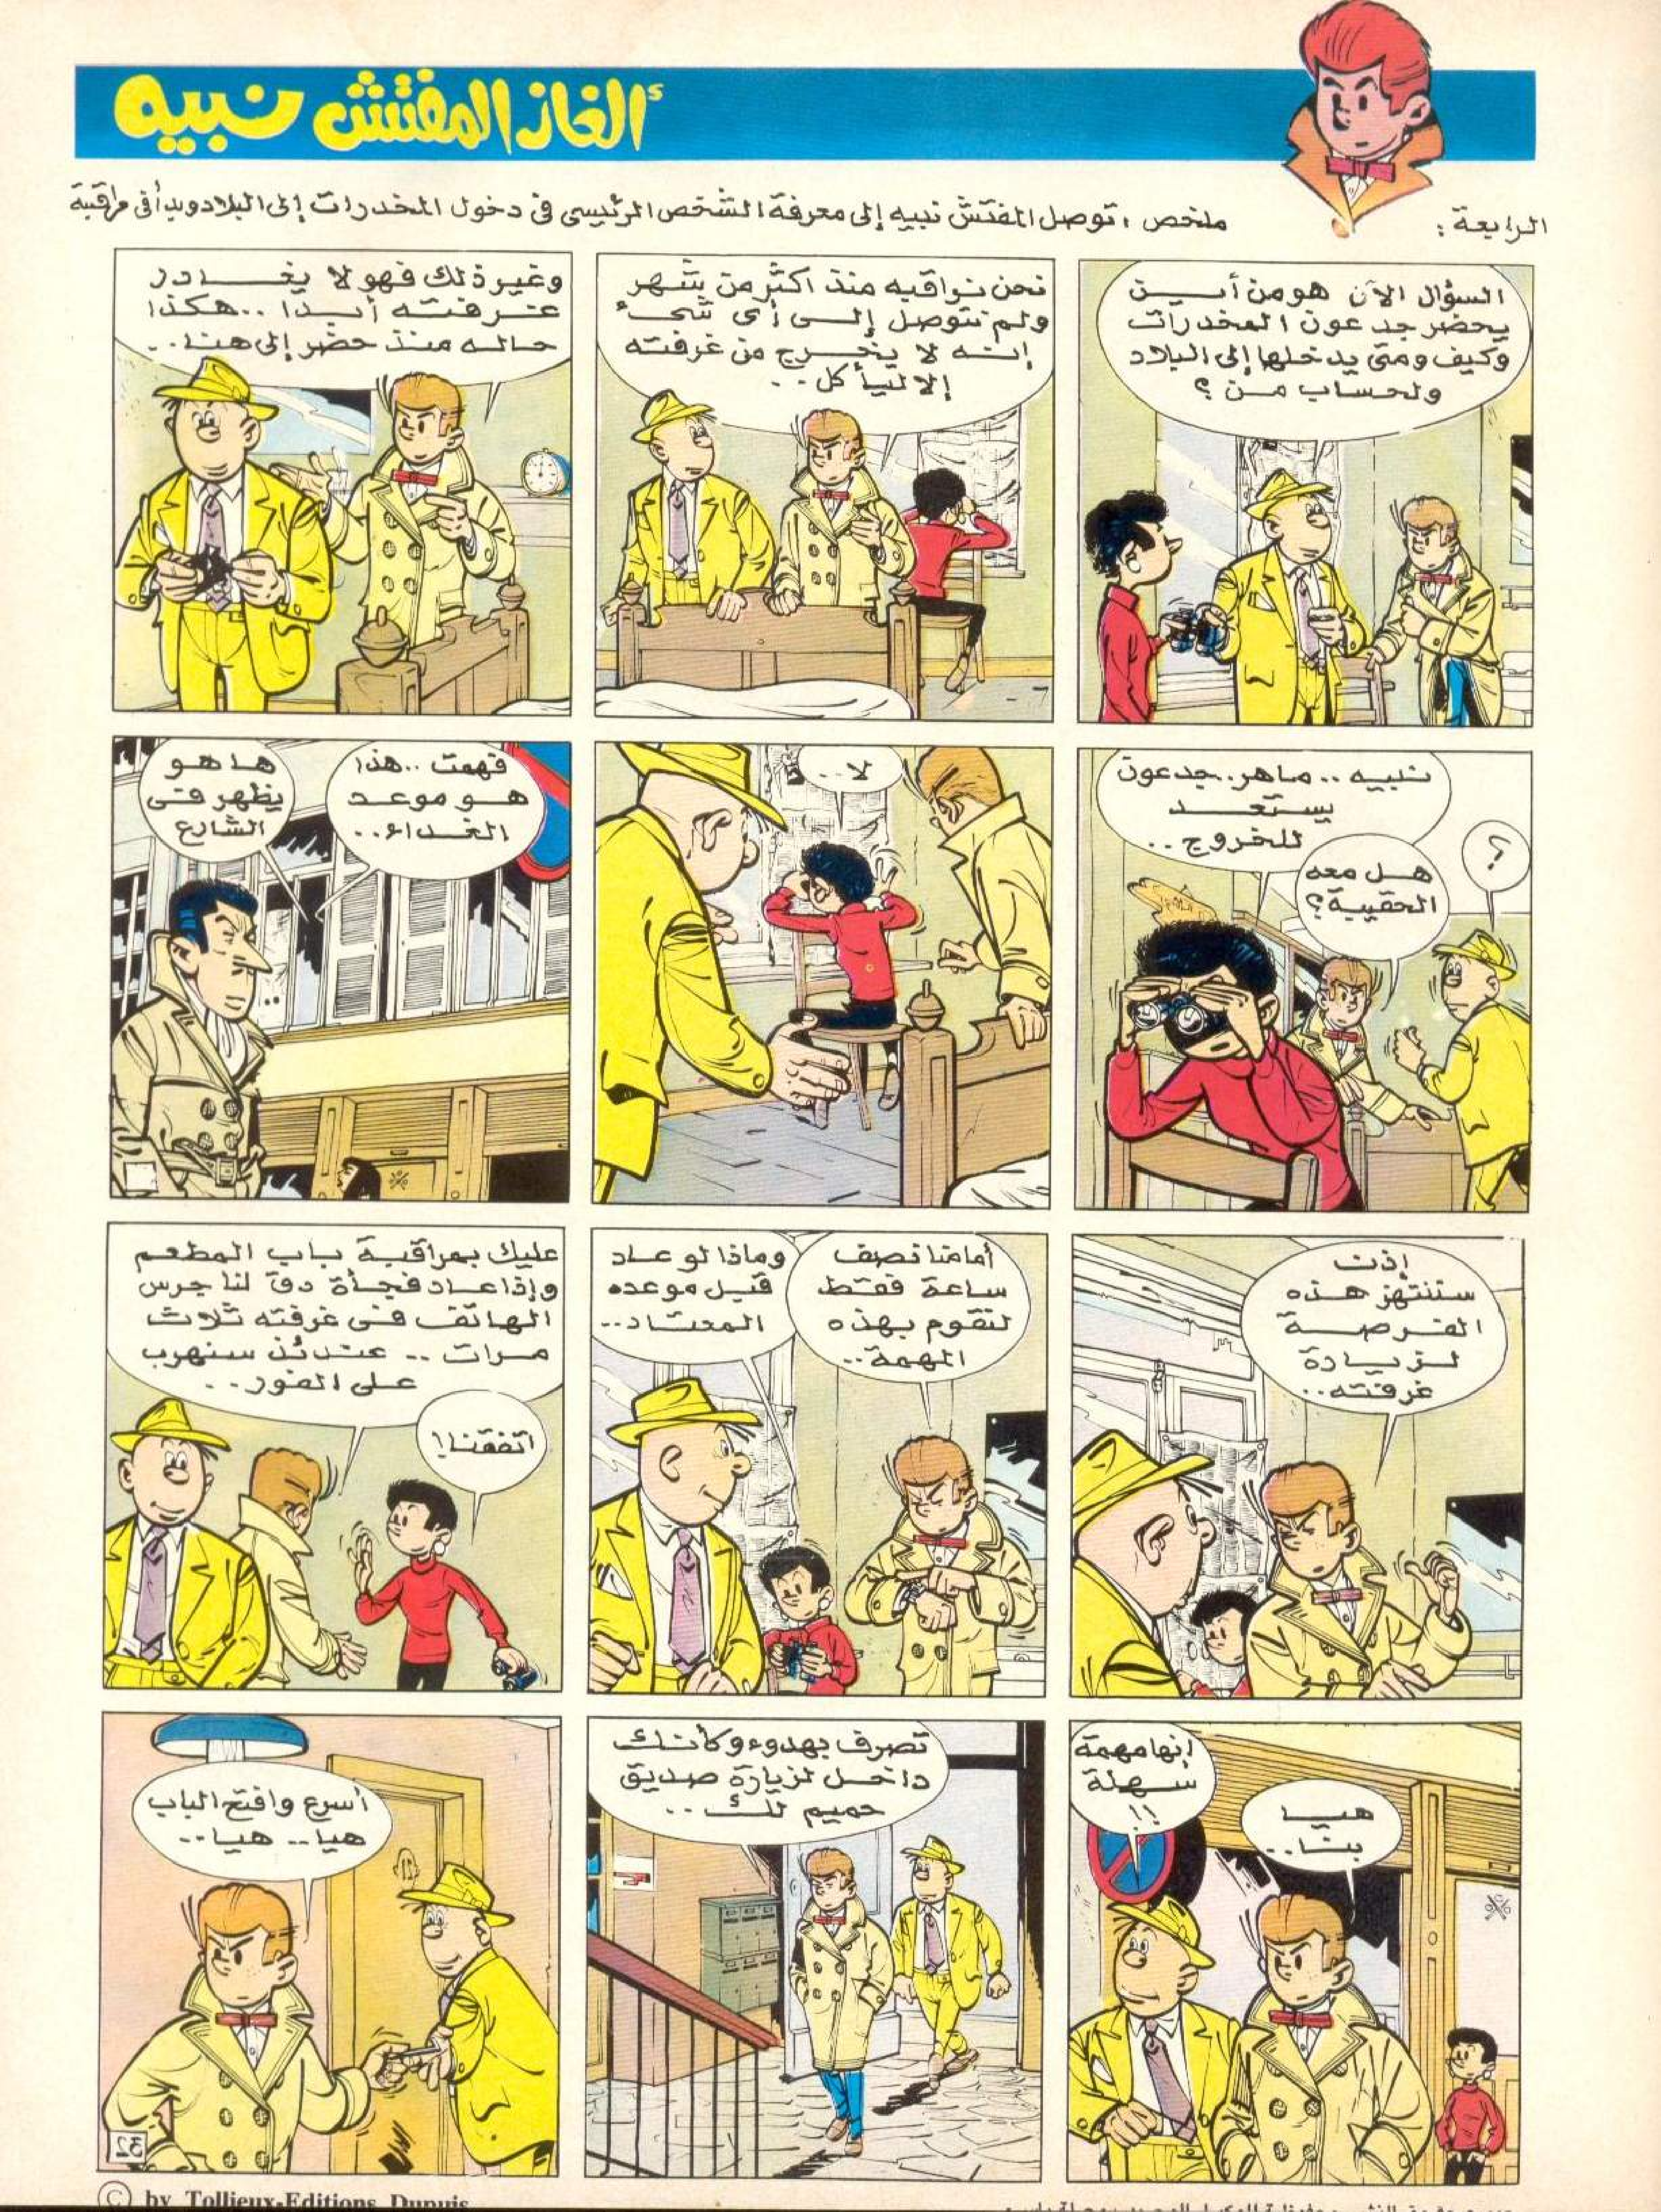 ألغاز المفتش نبيه
الرابعة :
ملخص : توصل المفتش نبيه إلى معرفة الشخص الرئيسى فى دخول المخدرات إلى البلاد وبدأ فى مراقبة
السؤال الآن هو من أين
يحضر جدعون المخدرات
وكيف ومتى يدخلها إلى البلاد
ولحساب من ؟
نحن نراقبه منذ اكثر من شهر
ولم نتوصل إلى أى شىء
إنه لا يخرج من غرفته
إلا ليأكل..
وغير ذلك فهو لا يغادر
غرفته أبدا .. هكذا
حاله منذ حضر إلى هنا..
نبيه .. ماهر.. جدعون
يستعد
للخروج ..
هل معه
الحقيبة؟
؟
لا..
فهمت .. هذا
هو موعد
الغداء..
ها هو
يظهر فى
الشارع
إذن
سننتهز هذه
الفرصة
لزيارة
غرفته..
أمامنا نصف
ساعة فقط
لنقوم بهذه
المهمة..
وماذا لو عاد
قبل موعده
المعتاد..
عليك بمراقبة باب المطعم
وإذا عاد فجأة دق لنا جرس
الهاتف فى غرفته ثلاث
مرات .. عندئذ سنهرب
على الفور..
اتفقنا!
إنها مهمة
سهلة
!!
هيا
بنا..
تصرف بهدوء وكأنك
داخل لزيارة صديق
حميم لك ..
أسرع وافتح الباب
هيا.. هيا..
32
© by Tollieux-Editions Dupuis